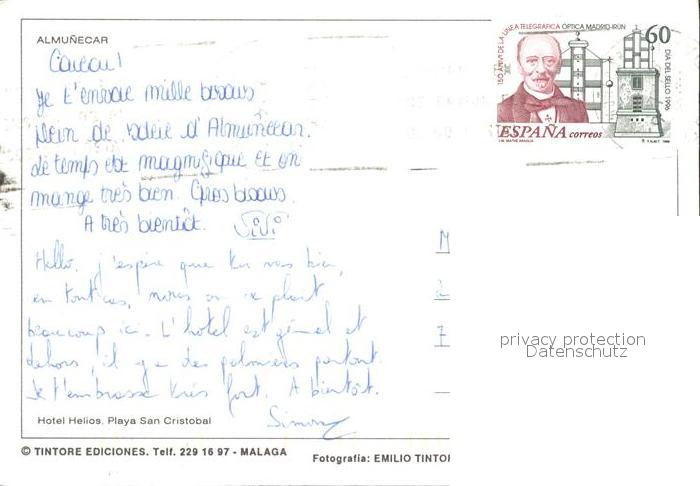 ALMUÑECAR
150 ANIV. DE LA LINEA TELEGRAFICA OPTICA MADRID-IRUN
60
DIA DEL SELLO 1996
ESPAÑA correos
Coucou!
Je t'envoie mille bisous
plein de soleil d'Almuñecar.
Le temps est magnifique et on
mange très bien. Gros bisous.
A très bientôt. SiVi
Hello, j'espère que tu vas bien,
en tout cas, nous on se plait
beaucoup ici. L'hotel est génial et
dehors, il y a des palmiers partout.
Je t'embrasse très fort. A bientôt.
Simon
M
2
7
privacy protection
Datenschutz
Hotel Helios. Playa San Cristobal
© TINTORE EDICIONES. Telf. 229 16 97 - MALAGA
Fotografía: EMILIO TINTOR